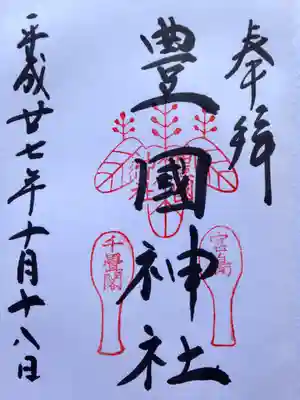 奉拝
豊國神社
千畳閣
宮島
平成廿七年十月十八日